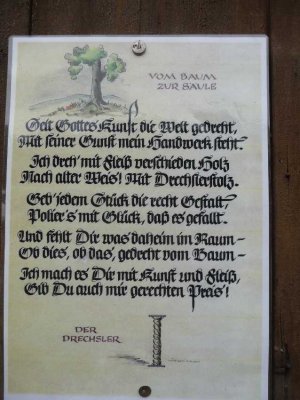 VOM BAUM
ZUR SÄULE
Seit Gottes Kunst die Welt gedreht,
Mit seiner Gunst mein Handwerk steht.
Ich dreh' mit Fleiß verschieden Holz
Nach alter Weis'! Mit Drechslerstolz.
Geb' jedem Stück die recht Gestalt
Polier's mit Glück, daß es gefallt.
Und fehlt Dir was daheim im Raum –
Ob dies, ob das, gedreht vom Baum –
Ich mach es Dir mit Kunst und Fleiß,
Gib Du auch mir gerechten Preis!
DER
DRECHSLER